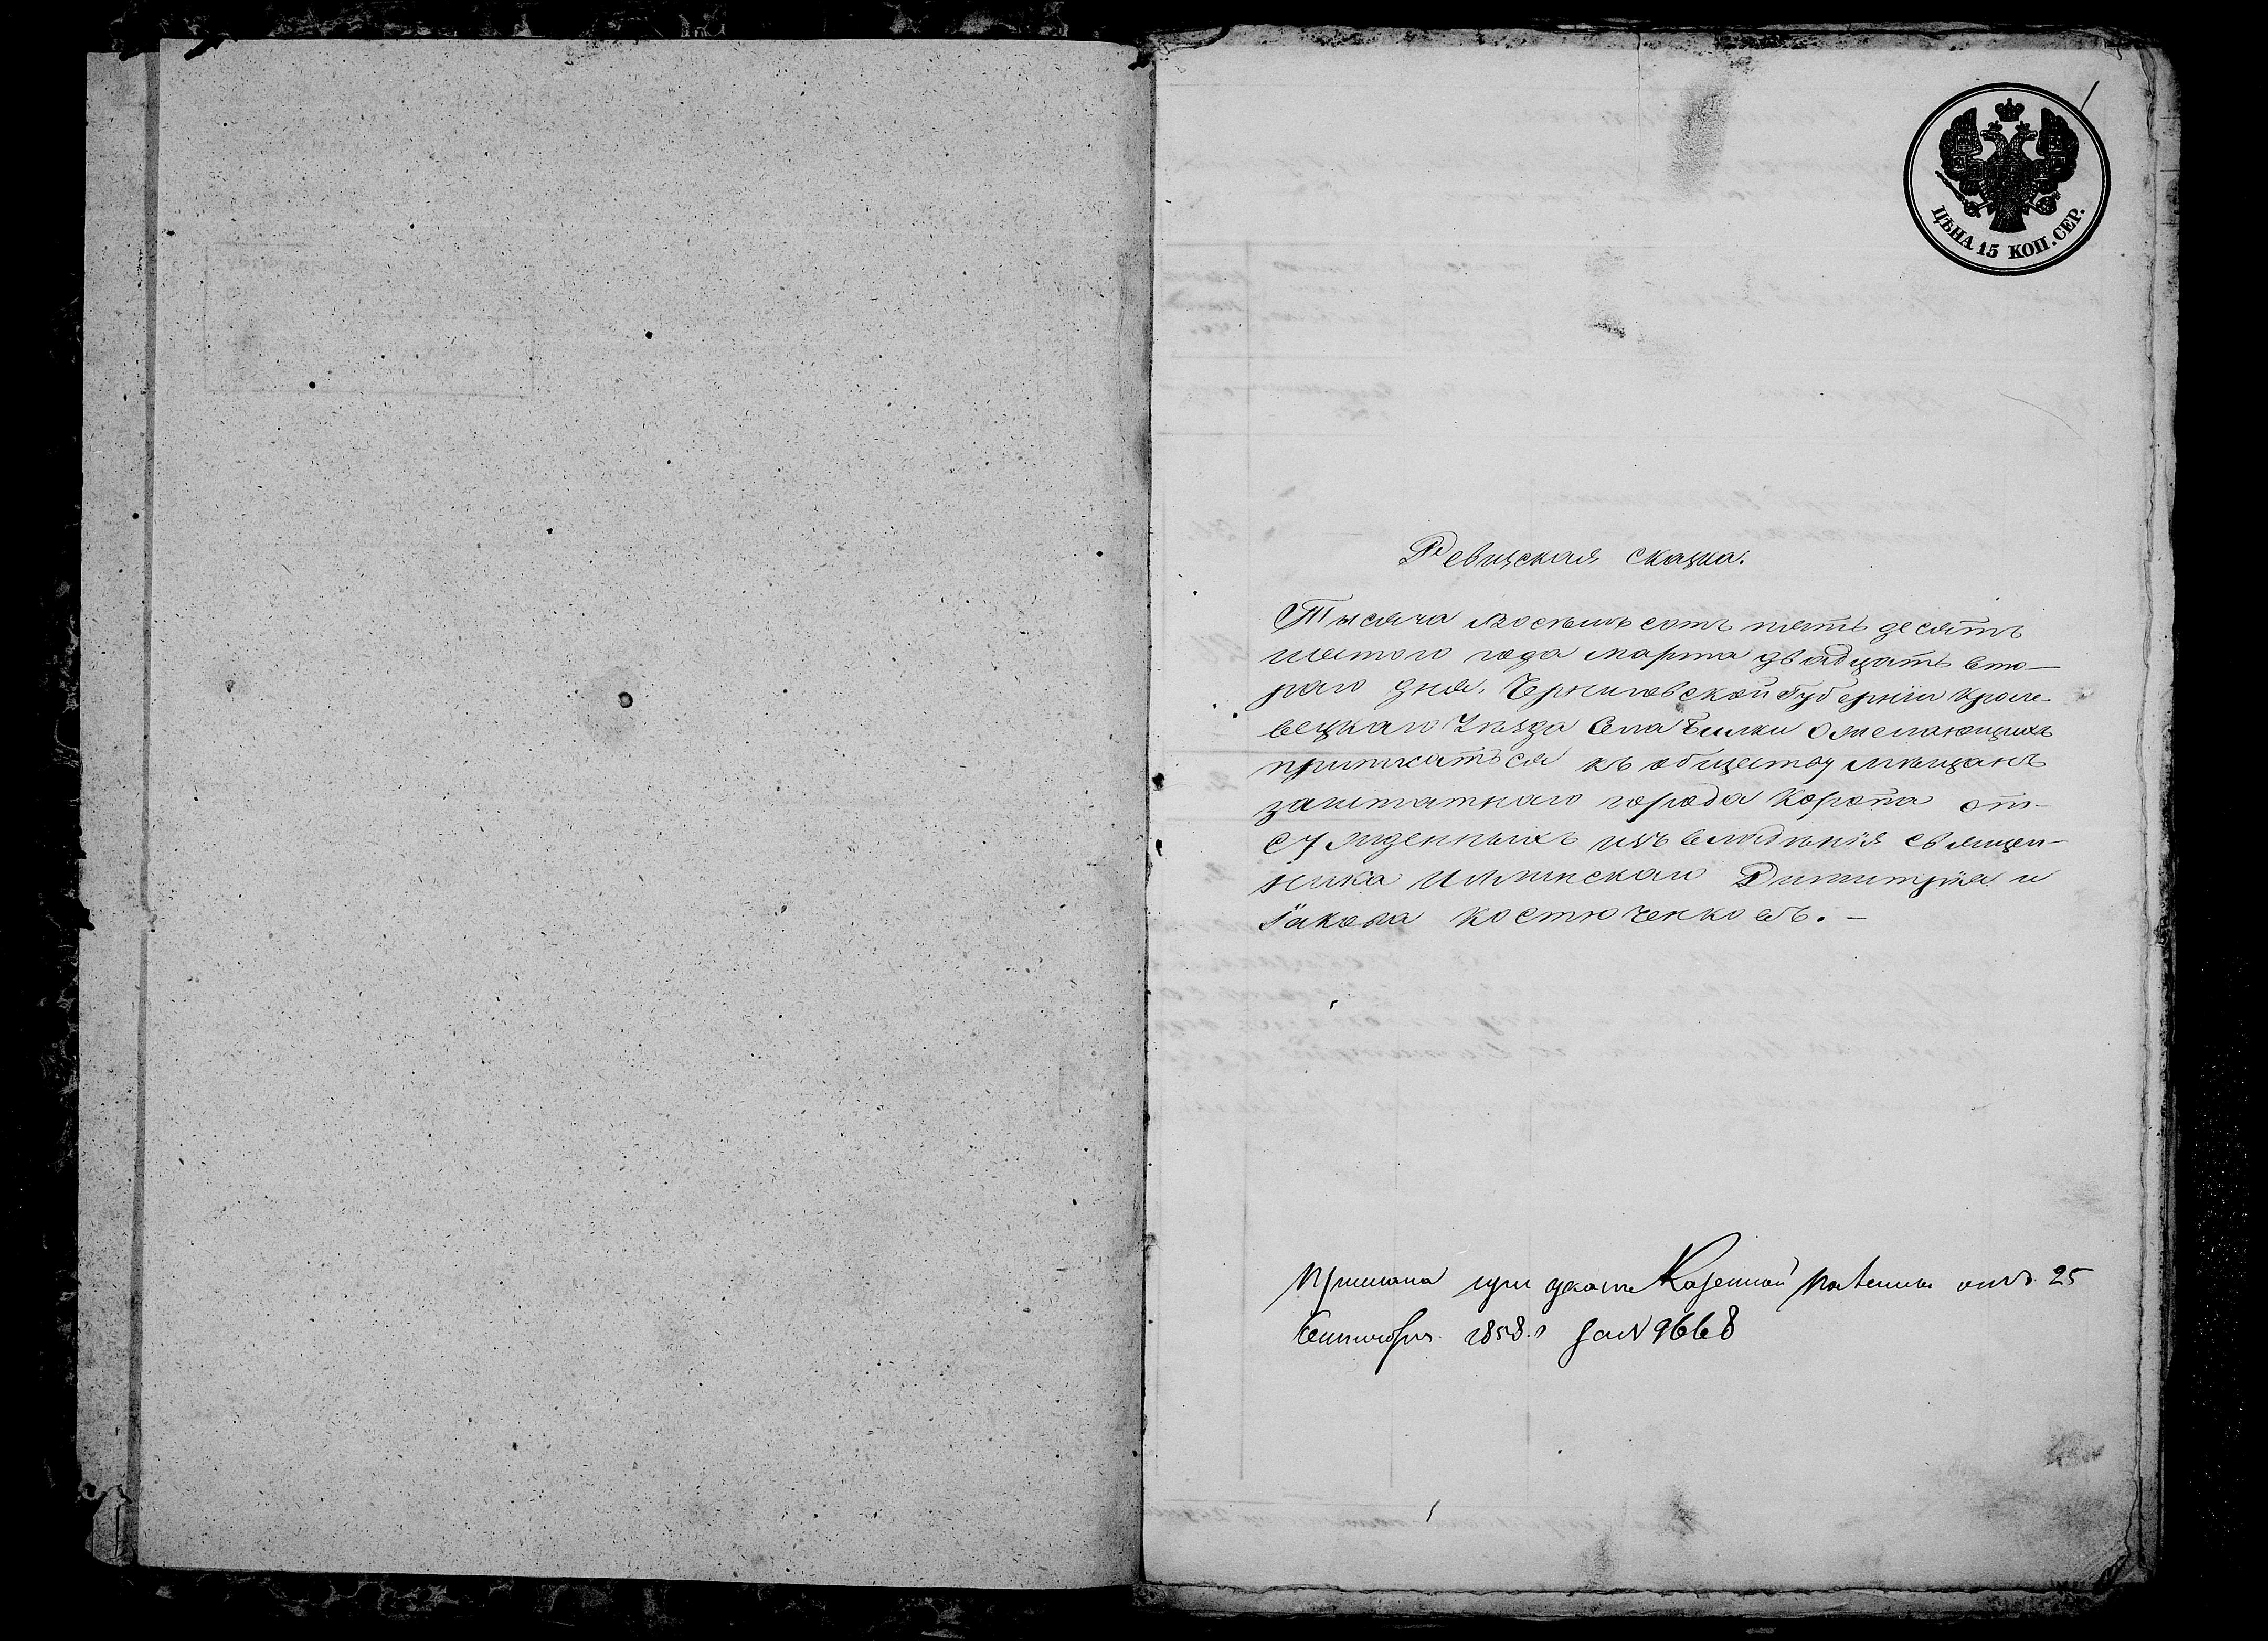 ЦѢНА 15 КОП. СЕР.
Ревизская сказка.
Тысяча восемь сотъ пять десятъ
шестого года марта двадцать вто-
раго дня. Черниговской губерніи Кроле-
вецкаго Уѣзда Села Билки о желающихъ
приписаться къ обществу мѣщанъ
заштатнаго города Коропа от-
сужденныхъ изъ владѣнія священ-
ника Димитрія и
Іакова Костюченковъ. —
при указѣ Казенной Палаты отъ 25
Сентября 1858 г за N 9668